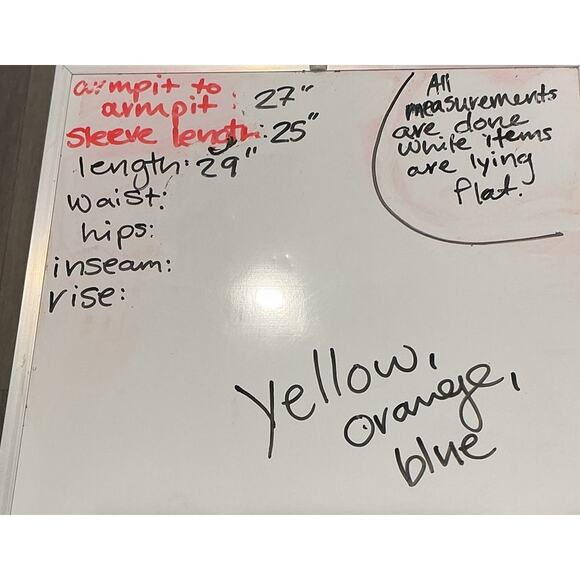 armpit to
armpit: 27"
sleeve length: 25"
length: 29"
waist:
hips:
inseam:
rise:
All
measurements
are done
while items
are lying
flat.
yellow,
orange,
blue